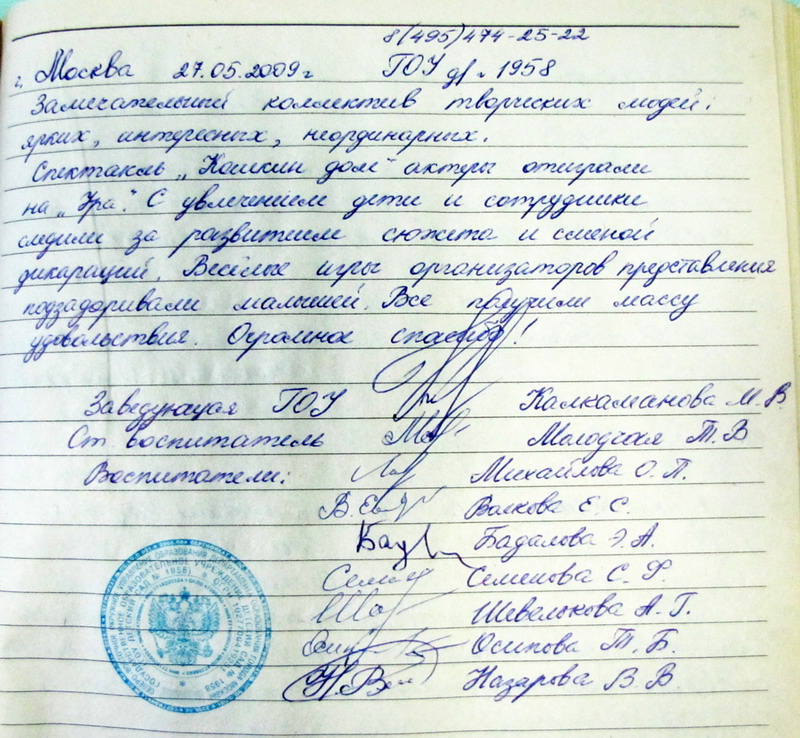 8(495)474-25-22
г. Москва 27.05.2009г ГОУ д/с 1958
Замечательный коллектив творческих людей:
ярких, интересных, неординарных.
Спектакль „Кошкин дом" актеры отыграли
на „Ура". С увлечением дети и сотрудники
следили за развитием сюжета и сменой
дикараций. Весёлые игры организаторов представления
подзадоривали малышей. Все получили массу
удовольствия. Огромное спасибо!
Заведующая ГОУ Калкаманова М.В.
Ст. воспитатель Молодчая Т.В
Воспитатели: Михайлова О.П.
Волкова Е.С.
Бадалова Э.А.
Семенова С.Ф.
Шевелькова А.Г.
Осипова Т.Б.
Назарова В.В.